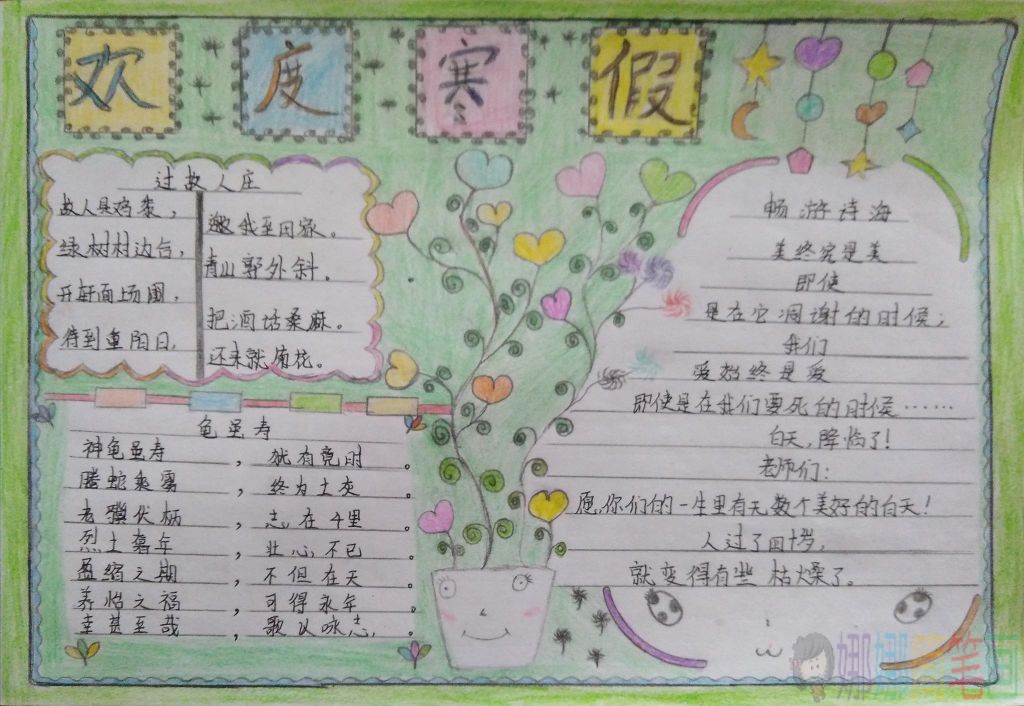 欢度寒假
过故人庄
故人具鸡黍，邀我至田家。
绿树村边合，青山郭外斜。
开轩面场圃，把酒话桑麻。
待到重阳日，还来就菊花。
龟虽寿
神龟虽寿，犹有竟时。
腾蛇乘雾，终为土灰。
老骥伏枥，志在千里
烈士暮年，壮心不已
盈缩之期，不但在天。
养怡之福，可得永年。
幸甚至哉，歌以咏志。
畅游诗海
美终究是美
即使
是在它凋谢的时候；
我们
爱始终是爱
即使是在我们要死的时候……
白天，降临了！
老师们：
愿你们的一生里有无数个美好的白天！
人过了四十岁，
就变得有些枯燥了。
娜娜简笔画